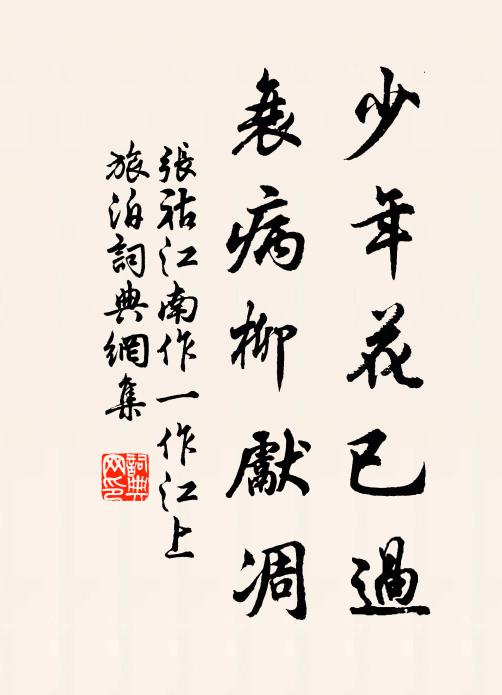 少年花已過
衰病柳獻凋
張祜江南作一作江上
旅泊詞典網集
詞典網印